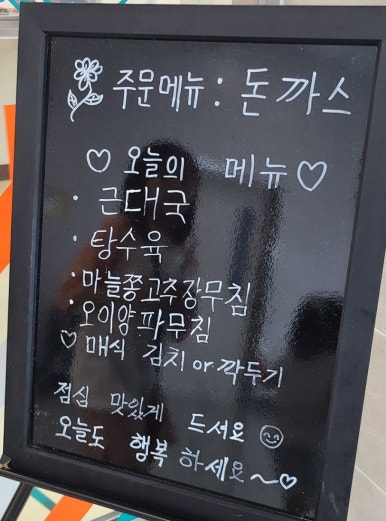 주문메뉴 : 돈까스
♡ 오늘의 메뉴 ♡
· 근대국
· 탕수육
· 마늘쫑고추장무침
· 오이양파무침
♡ 매식 김치 or 깍두기
점심 맛있게 드셔요 😊
오늘도 행복하세요~♡